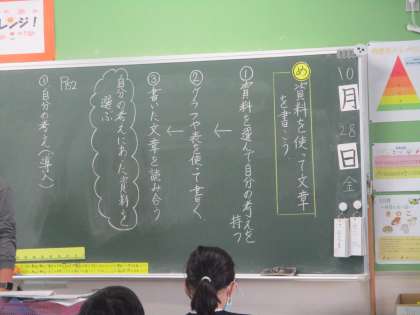 め 資料を使って文章
を書こう
①資料を選んで自分の考えを
持つ
②グラフや表を使って書く
③書いた文章を読み合う
自分の考えにあった資料を
選ぶ
P82
①自分の考え(導入)
10
月
28
日
金
レンジ!